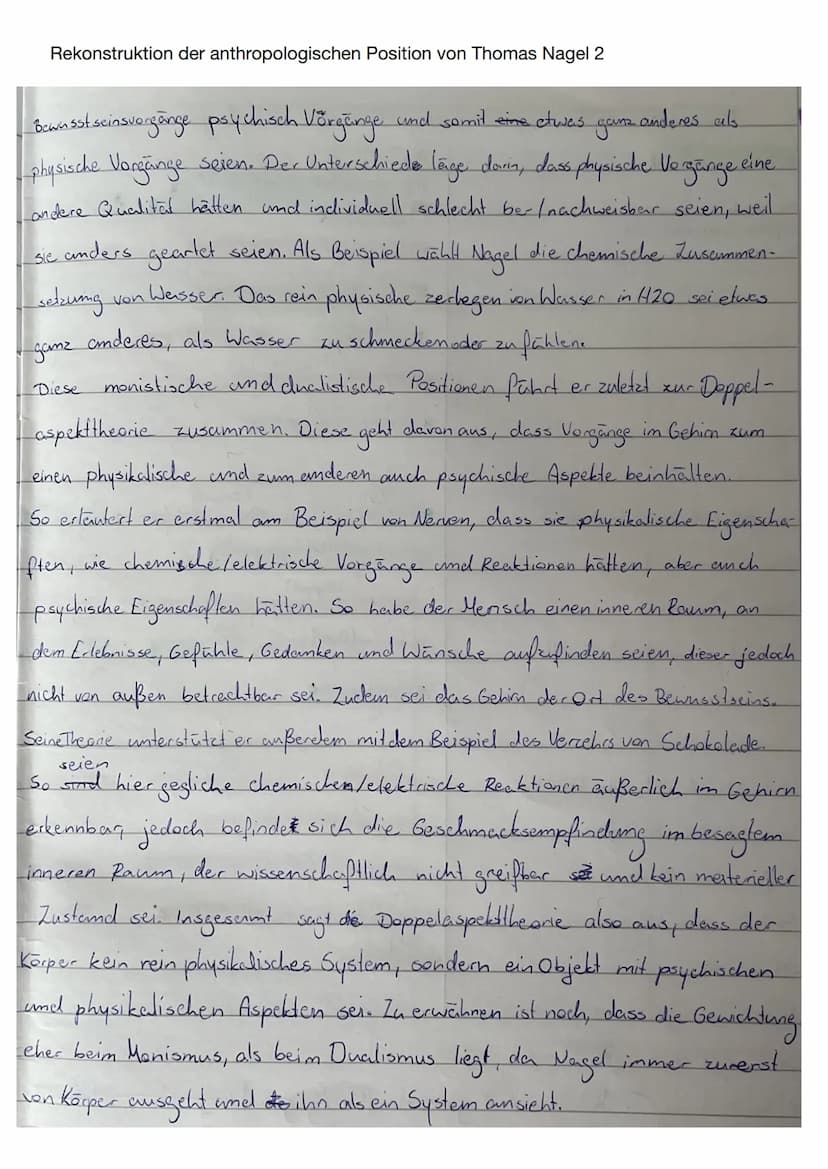 Rekonstruktion der anthropologischen Position von Thomas Nagel 2
Bewusstseinsvorgänge psychisch Vorgänge und somit eine etwas ganz anderes als
physische Vorgänge seien. Der Unterschiede läge darin, dass physische Vorgänge eine
andere Qualität hätten und individuell schlecht be-/nachweisbar seien, weil
sie anders geartet seien. Als Beispiel wählt Nagel die chemische Zusammen-
setzung von Wasser. Das rein physische zerlegen von Wasser in H2O sei etwas
ganz anderes, als Wasser zu schmecken oder zu fühlen.
Diese monistische und dualistische Positionen führt er zuletzt zur Doppel-
aspekttheorie zusammen. Diese geht davon aus, dass Vorgänge im Gehirn zum
einen physikalische und zum anderen auch psychische Aspekte beinhalten.
So erläutert er erstmal am Beispiel von Nerven, dass sie physikalische Eigenscha-
ften, wie chemische/elektrische Vorgänge und Reaktionen hätten, aber auch
psychische Eigenschaften hätten. So habe der Mensch einen inneren Raum, an
dem Erlebnisse, Gefühle, Gedanken und Wünsche aufzufinden seien, dieser jedoch
nicht von außen betrachtbar sei. Zudem sei das Gehirn der Ort des Bewusstseins.
Seine Theorie unterstützt er außerdem mit dem Beispiel des Verzehrs von Schokolade.
seien
So sind hier jegliche chemischen/elektrische Reaktionen äußerlich im Gehirn
erkennbar, jedoch befindet sich die Geschmacksempfindung im besagtem
inneren Raum, der wissenschaftlich nicht greifbar und kein materieller
Zustand sei. Insgesamt sagt die Doppelaspekttheorie also aus, dass der
Körper kein rein physikalisches System, sondern ein Objekt mit psychischen
und physikalischen Aspekten sei. Zu erwähnen ist noch, dass die Gewichtung
eher beim Monismus, als beim Dualismus liegt, da Nagel immer zuerst
von Körper ausgeht und ihn als ein System ansieht.